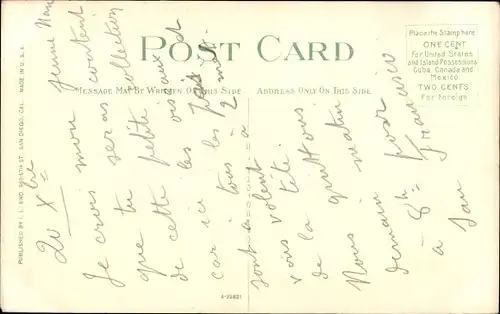 POST CARD
MESSAGE MAY BE WRITTEN ON THIS SIDE
ADDRESS ONLY ON THIS SIDE
Place the Stamp here
ONE CENT
For United States
and Island Possessions
Cuba, Canada and
Mexico.
TWO CENTS
For Foreign
PUBLISHED BY I. L. ENO, SAN DIEGO, CAL.
MADE IN U. S. A.
20 Xbre
Je crois mon jeune
que tu seras content
de cette petite collection
car ici les oiseaux et
sont tous à 2 met.
vous volent à
de la tête.
Nous quittons
demain matin
à 8h pour
San Francisco